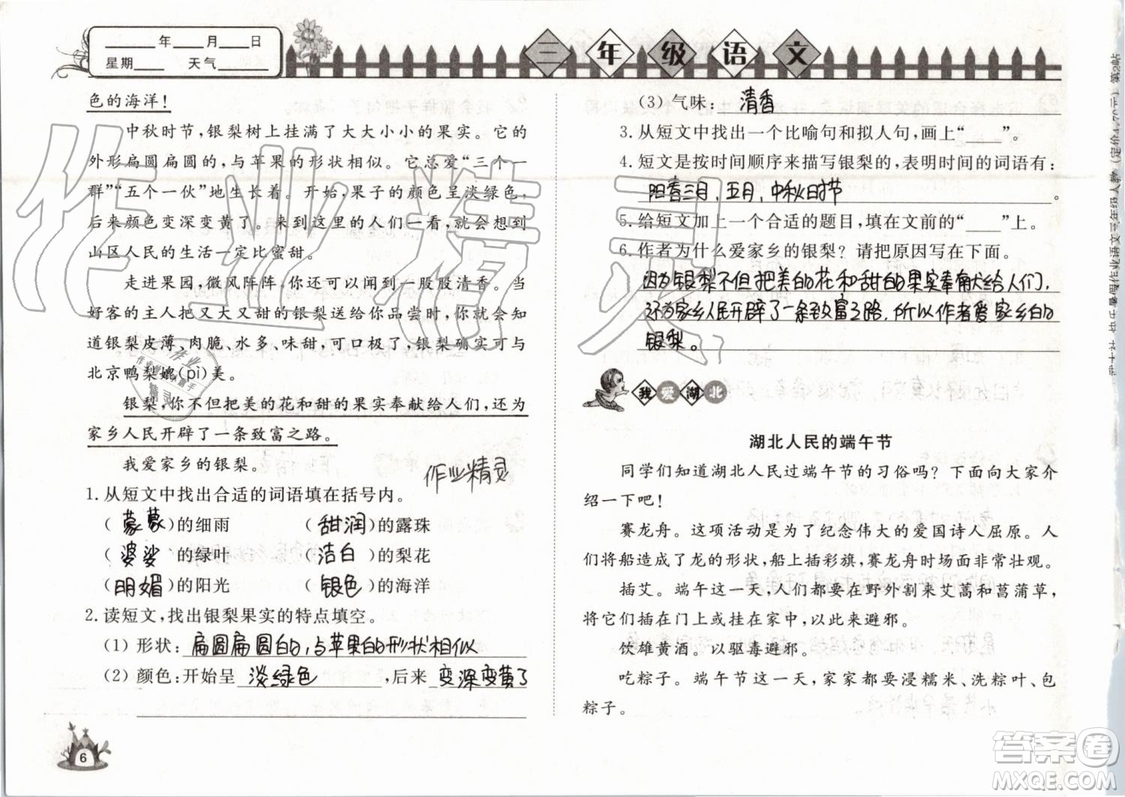 ______年____月____日
星期____ 天气________
三年级语文
色的海洋！
中秋时节，银梨树上挂满了大大小小的果实。它的
外形扁圆扁圆的，与苹果的形状相似。它们爱“三个一
群”“五个一伙”地生长着。开始，果子的颜色呈淡绿色，
后来颜色变深变黄了。来到这里的人们一看，便知道
山区人民的生活一定比蜜甜。
走进果园，微风阵阵，你可以闻到一股股清香。当
好客的主人把又大又甜的银梨送给你品尝时，你就会
知道银梨皮薄、肉脆、水多、味甜，可口极了，银梨确实可与
北京鸭梨媲(pì)美。
银梨，你不但把美的花和甜的果实奉献给人们，还为
家乡人民开辟了一条致富之路。
我爱家乡的银梨。
作业精灵
1. 从短文中找出合适的词语填在括号内。
（蒙蒙）的细雨 （甜润）的露珠
（婆娑）的绿叶 （洁白）的梨花
（明媚）的阳光 （银色）的海洋
2. 读短文，找出银梨果实的特点填空。
(1) 形状：扁圆扁圆的，与苹果的形状相似
(2) 颜色：开始呈 淡绿色，后来 变深变黄了
6
(3) 气味：清香
3. 从短文中找出一个比喻句和拟人句，画上“____”。
4. 短文是按时间顺序来描写银梨的，表明时间的词语有：
阳春三月，五月，中秋时节。
5. 给短文加上一个合适的题目，填在文前的“____”上。
6. 作者为什么爱家乡的银梨？请把原因写在下面。
因为银梨不但把美的花和甜的果实奉献给人们，
还为家乡人民开辟了一条致富之路，所以作者爱家乡的
银梨。
我爱湖北
湖北人民的端午节
同学们知道湖北人民过端午节的习俗吗？下面向大家介
绍一下吧！
赛龙舟。这项活动是为了纪念伟大的爱国诗人屈原。人
们将船做成了龙的形状，船上插彩旗，赛龙舟时场面非常壮观。
插艾。端午节这一天，人们都要在野外割来艾蒿和菖蒲草，
插在门上或挂在家中，以此来避邪。
饮雄黄酒。以驱毒避邪。
吃粽子。端午节这一天，家家都要浸糯米、洗粽叶、包
粽子。
作业精灵
答案卷
MXQE.COM